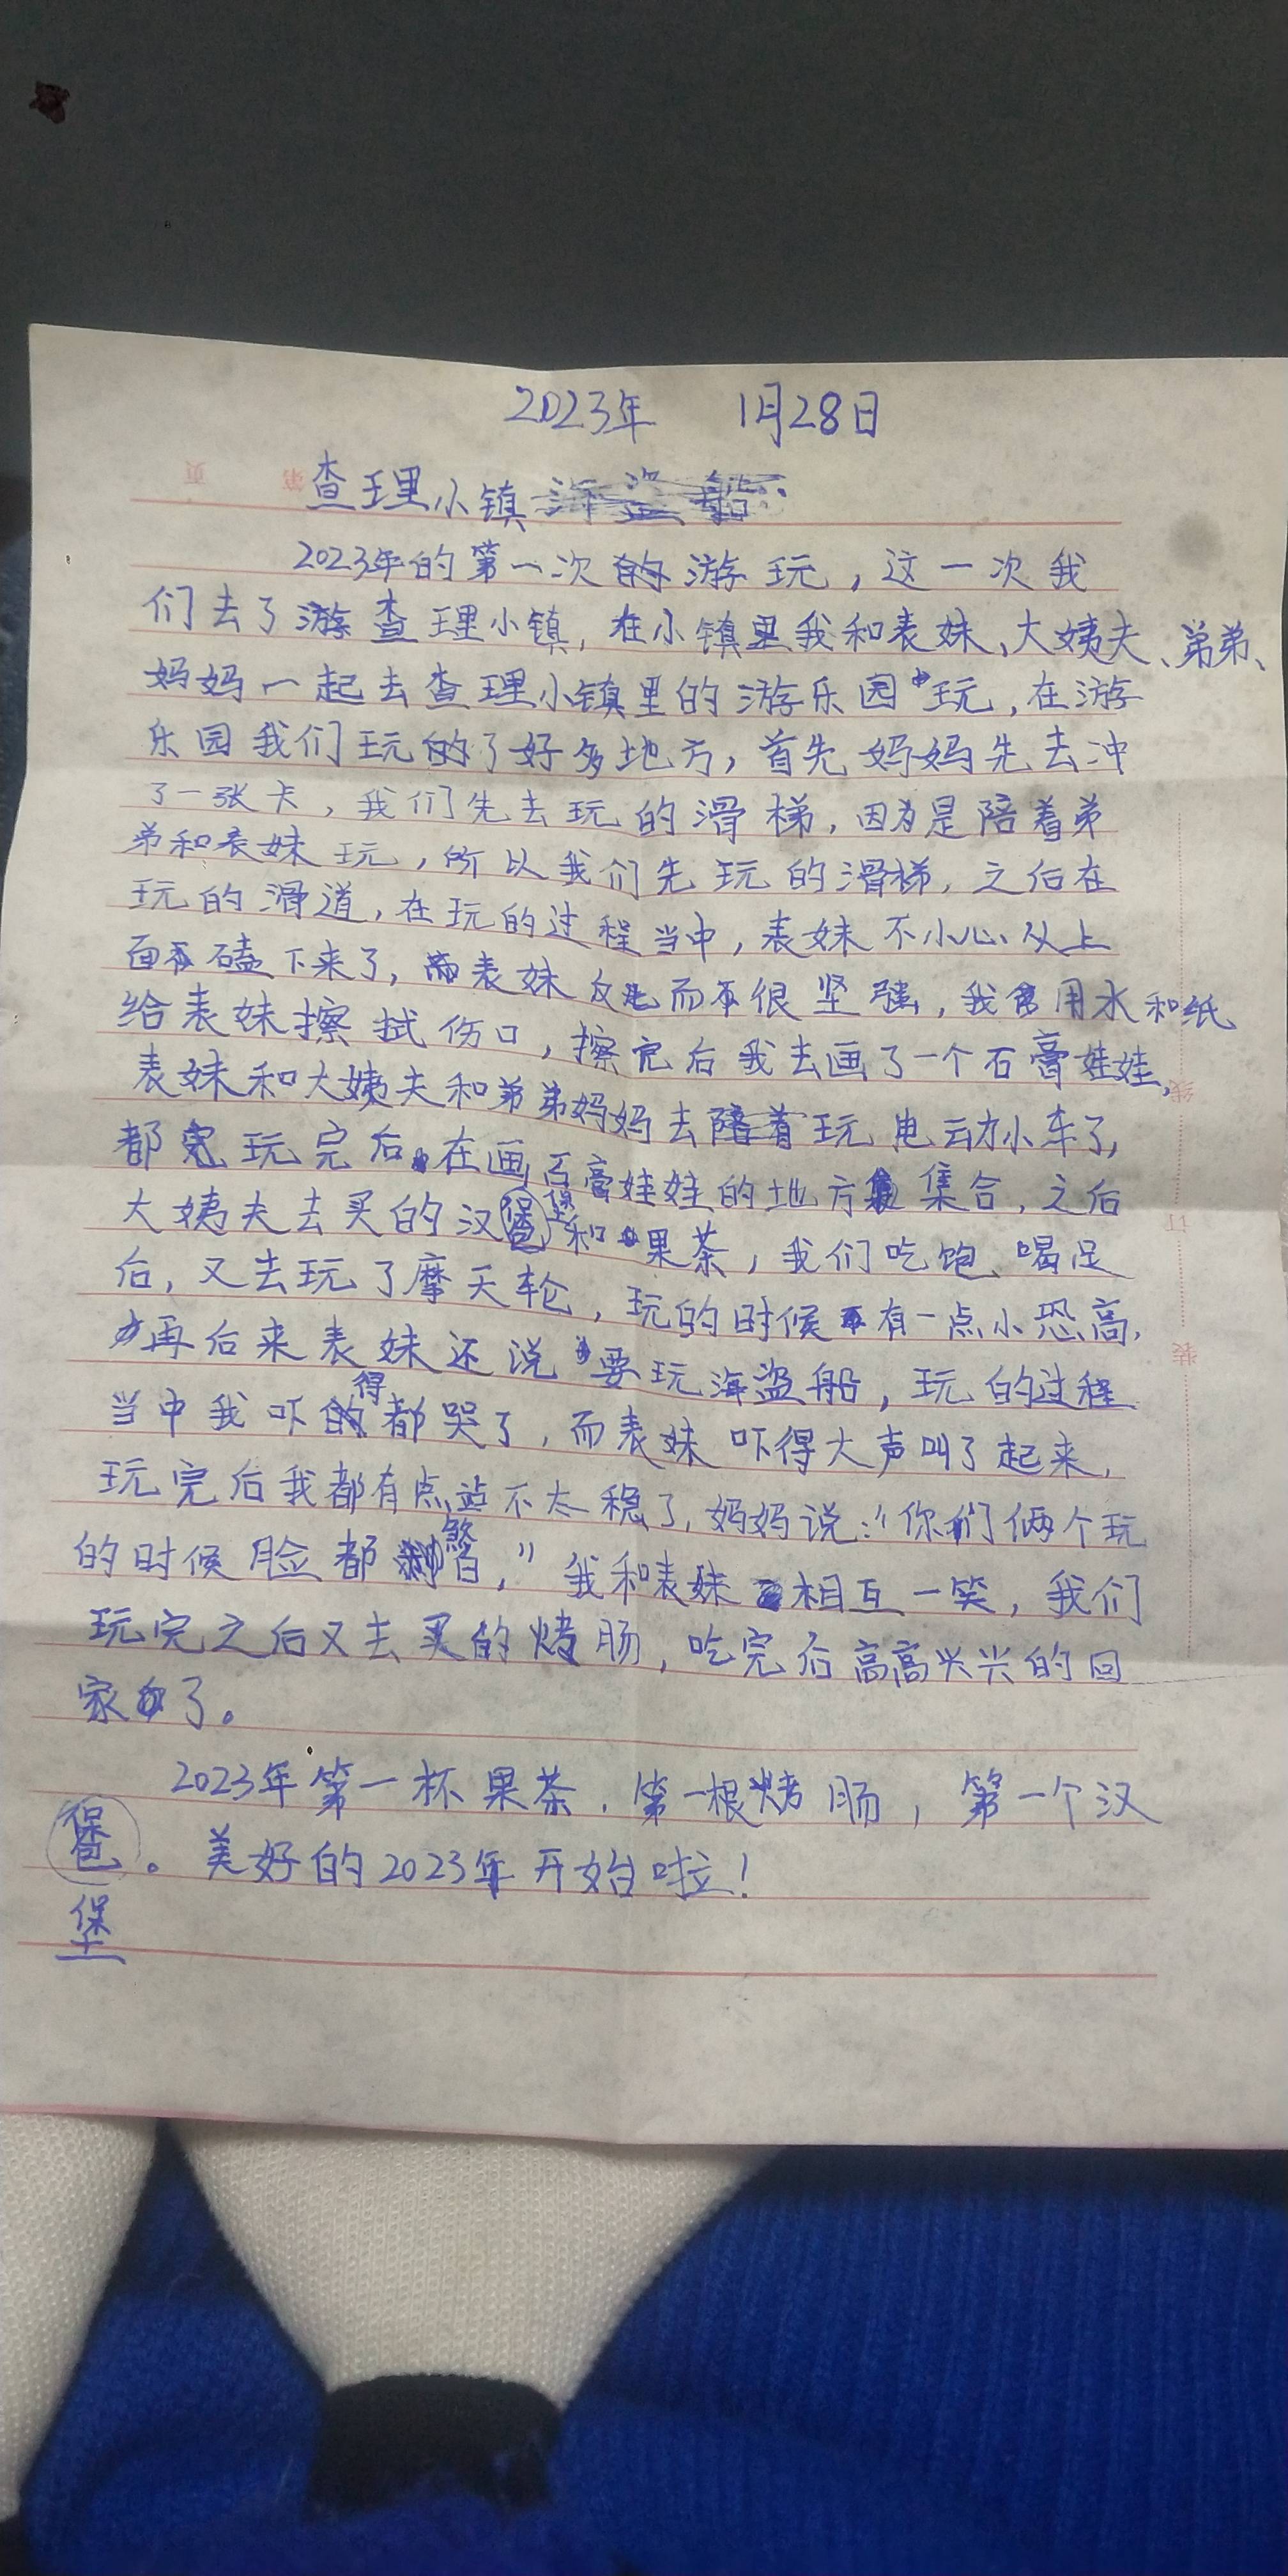 2023年 1月28日
查理小镇
2023年的第一次的游玩，这一次我
们去了游查理小镇，在小镇里我和表妹、大姨夫、弟弟、
妈妈一起去查理小镇里的游乐园玩，在游
乐园我们玩的了好多地方，首先妈妈先去冲
了一张卡，我们先去玩的滑梯，因为是陪着弟
弟和表妹玩，所以我们先玩的滑梯，之后在
玩的滑道，在玩的过程当中，表妹不小心从上
面磕下来了，表妹反而很坚强，我用水和纸
给表妹擦拭伤口，擦完后我去画了一个石膏娃娃，
表妹和大姨夫和弟弟妈妈去陪着玩电动小车了，
都玩完后在画石膏娃娃的地方集合，之后
大姨夫去买的汉堡和果茶，我们吃饱、喝足
后，又去玩了摩天轮，玩的时候有一点小恐高，
再后来表妹还说要玩海盗船，玩的过程
当中我吓得都哭了，而表妹吓得大声叫了起来，
玩完后我都有点站不太稳了，妈妈说：“你们俩个玩
的时候脸都煞白，”我和表妹相互一笑，我们
玩完之后又去买的烤肠，吃完后高高兴兴的回
家了。
2023年第一杯果茶，第一根烤肠，第一个汉
。美好的2023年开始啦！
堡
第 页
装 订 线